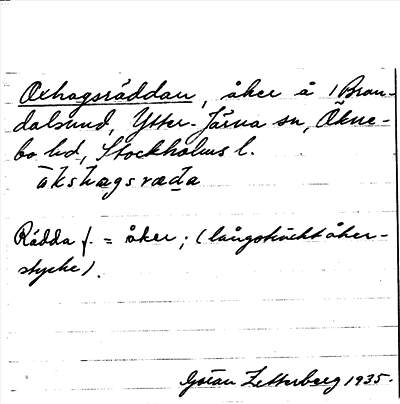 Oxhagsräddan, åker å / Bran-
dalsund, Ytter-Järna sn, Ökne-
bo hd, Stockholms l.
ökshagsræda
Rädda f. = åker; (långsträckt åker-
stycke).
Götan Zetterberg 1935.